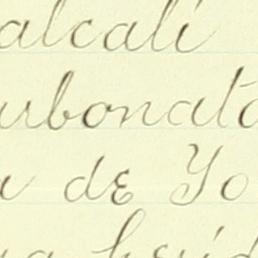 alcali
urbonata
a de Yo